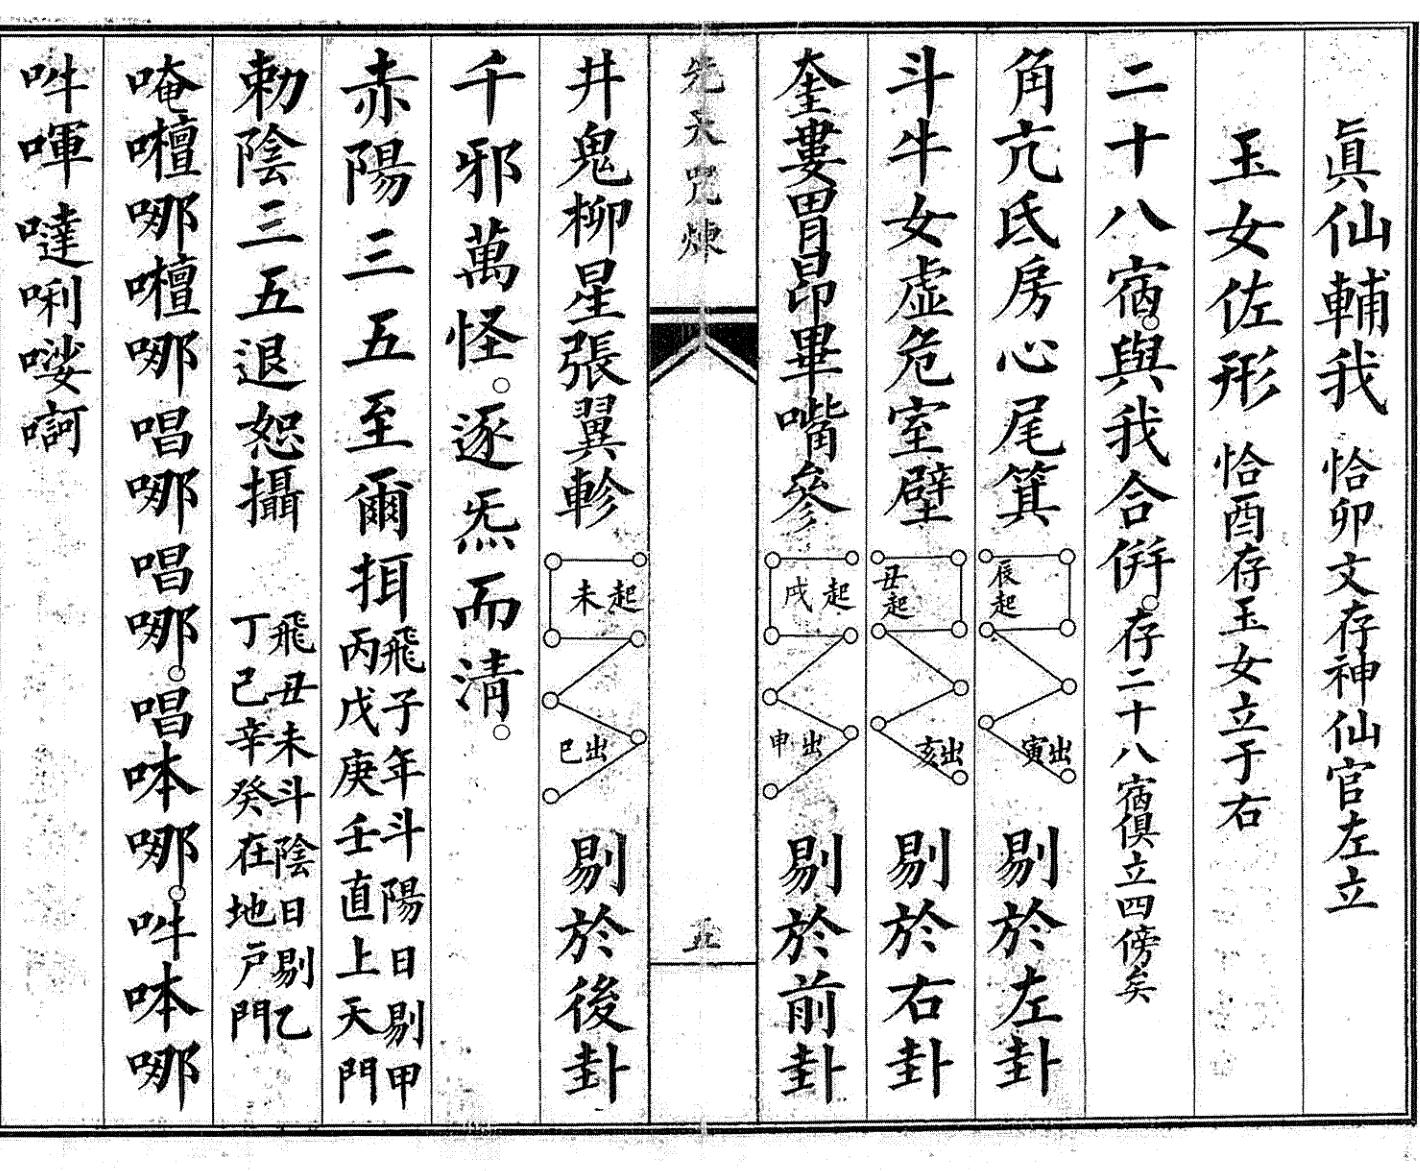 眞仙輔我 恰卯文存神仙官左立
玉女佐形 恰酉存玉女立于右
二十八宿。與我合併。存二十八宿俱立四傍矣
角亢氐房心尾箕 辰起 寅出 剔於左卦
斗牛女虛危室壁 丑起 亥出 剔於右卦
奎婁胃昴畢嘴參 戌起 申出 剔於前卦
先天咒煉 五
井鬼柳星張翼軫 未起 巳出 剔於後卦
千邪萬怪。逐炁而清。
赤陽三五至爾挕 飛子年斗陽日剔甲
丙戊庚壬直上天門
勅陰三五退恕攝 飛丑未斗陰日剔乙
丁己辛癸在地户門
唵囋哪囋哪唱哪唱哪。唱呠哪。吽呠哪
吽喗噠唎㘕啊